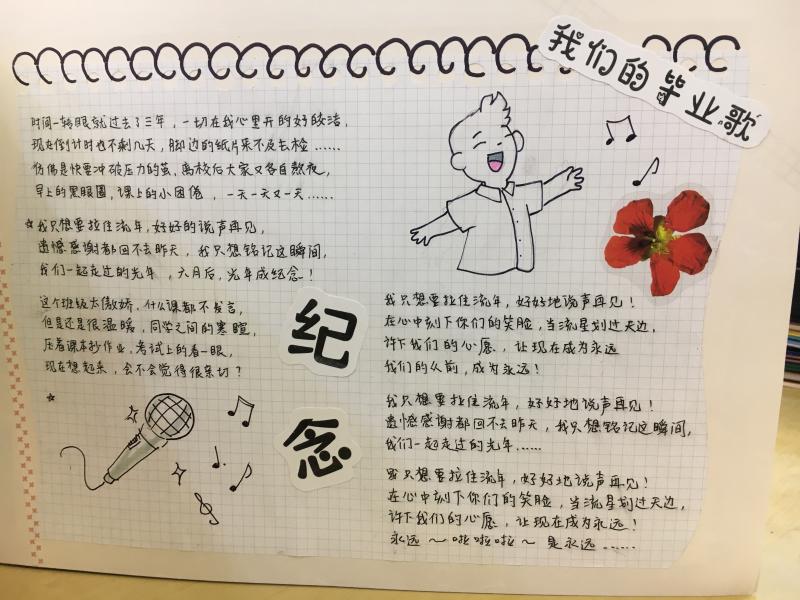 我们的毕业歌
时间一转眼就过去了三年，一切在我心里开的好皎洁，
现在倒计时也不剩几天，脚边的纸片来不及去检……
仿佛是快要冲破压力的茧，离校后大家又各自熬夜，
早上的黑眼圈，课上的小困倦，一天一天又一天……
☆我只想要拉住流年，好好的说声再见，
遗憾感谢都回不去昨天，我只想铭记这瞬间，
我们一起走过的光年，六月后，光年成纪念！
这个班级太傲娇，什么课都不发言，
但是还是很温暖，同学之间的寒暄，
压着课本抄作业，考试上的看一眼，
现在想起来，会不会觉得很亲切？
☆
纪
念
我只想要拉住流年，好好地说声再见！
在心中刻下你们的笑脸，当流星划过天边，
许下我们的心愿，让现在成为永远
我们的从前，成为永远！
我只想要拉住流年，好好地说声再见！
遗憾感谢都回不去昨天，我只想铭记这瞬间，
我们一起走过的光年……
我只想要拉住流年，好好地说声再见！
在心中刻下你们的笑脸，当流星划过天边，
许下我们的心愿，让现在成为永远！
永远～啦啦啦～是永远……